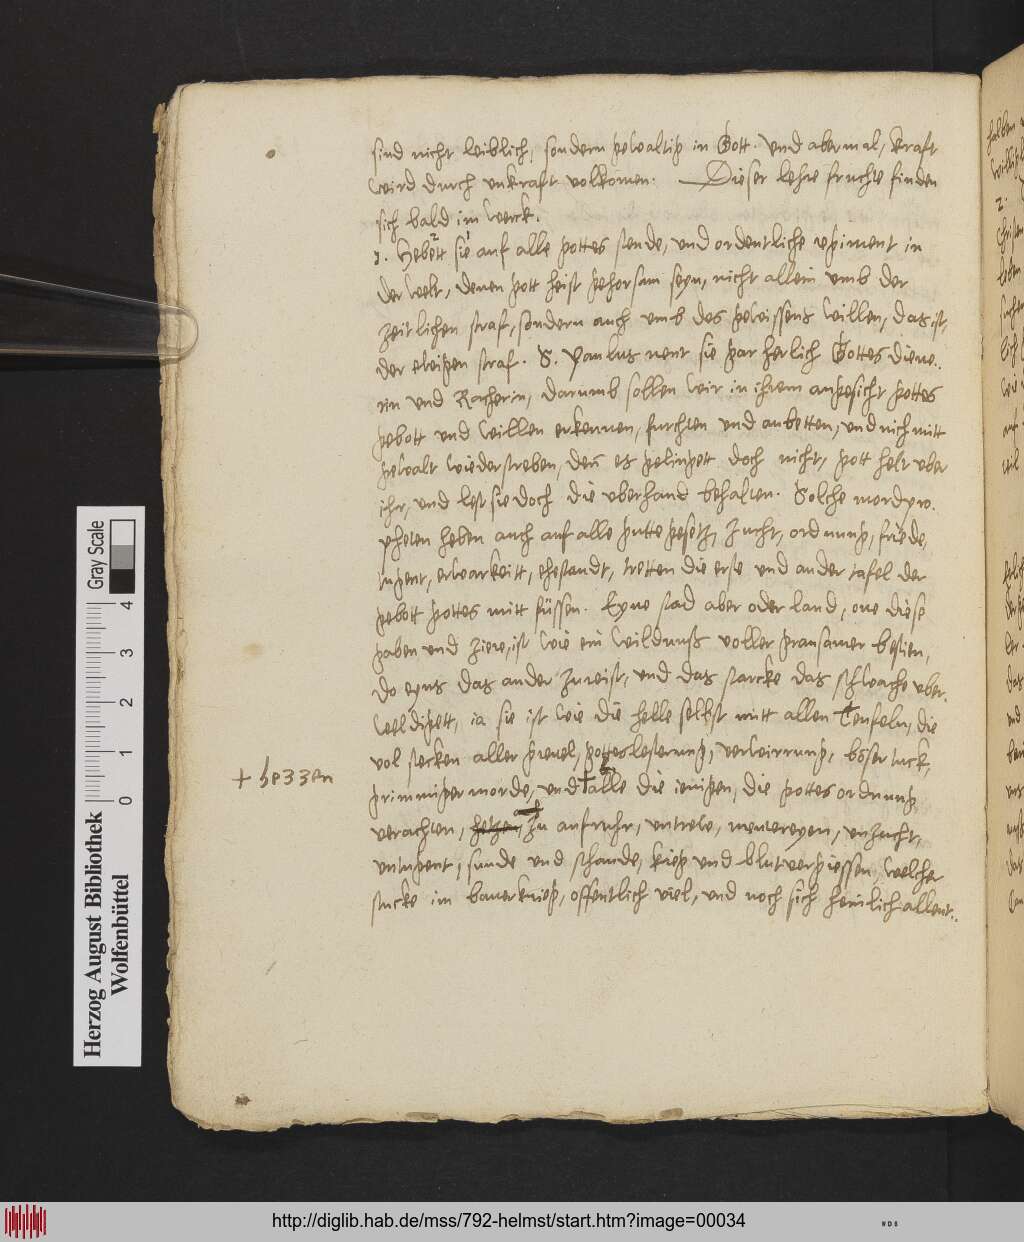 sind nicht leiblich, sondern gewaltig in Gott. und abermal, kraft
wird durch unkraft volkomen. Dieser lehre fruchte finden
sich bald im werck.
1. Hebett sie auf alle gottes stende, und ordentliche regiment in
der welt, denen gott heist gehorsam seyn, nicht allein umb der
zeitlichen straf, sondern auch umb des gewissens willen, das ist,
der ewigen straf. S. Paulus nent sie gar herlich Gottes diene..
rin und Racherin, darumb sollen wir in ihrem angesicht gottes
gebott und willen erkennen, furchten und anbetten, und nich mitt
gewalt wiederstreben, den es gelingett doch nicht, gott helt uber
ihr, und lest sie doch die uberhand behalten. Solche mordpro.
pheten heben auch auf alle gutte gesetz, zucht, ordnung, friede,
tugent, erbarkeitt, ehestandt, tretten die erste und ander tafel der
gebott gottes mitt füssen. Eyne stad aber oder land, one diese
gaben und ziere, ist wie ein wildnuß voller grausamer bestien,
do eyns das ander zureist, und das starcke das schwache uber.
weldigett, ia sie ist wie die helle selbst mitt allen Teufeln, die
vol stecken aller greuel, gotteslesterung, verwirrung, böser tuck,
+ hezzen
grimmiger morde, und + alle die ienigen, die gottes ordnung
verachten, hetzen, zu aufruhr, untrew, meutereyen, unzucht,
untugent, sunde und schande, krieg und blutvergiessen, welcher
stucke im baurkrieg, offentlich viel, und noch sich heimlich allent..
Herzog August Bibliothek
Wolfenbüttel
Gray Scale
0 1 2 3 4
http://diglib.hab.de/mss/792-helmst/start.htm?image=00034